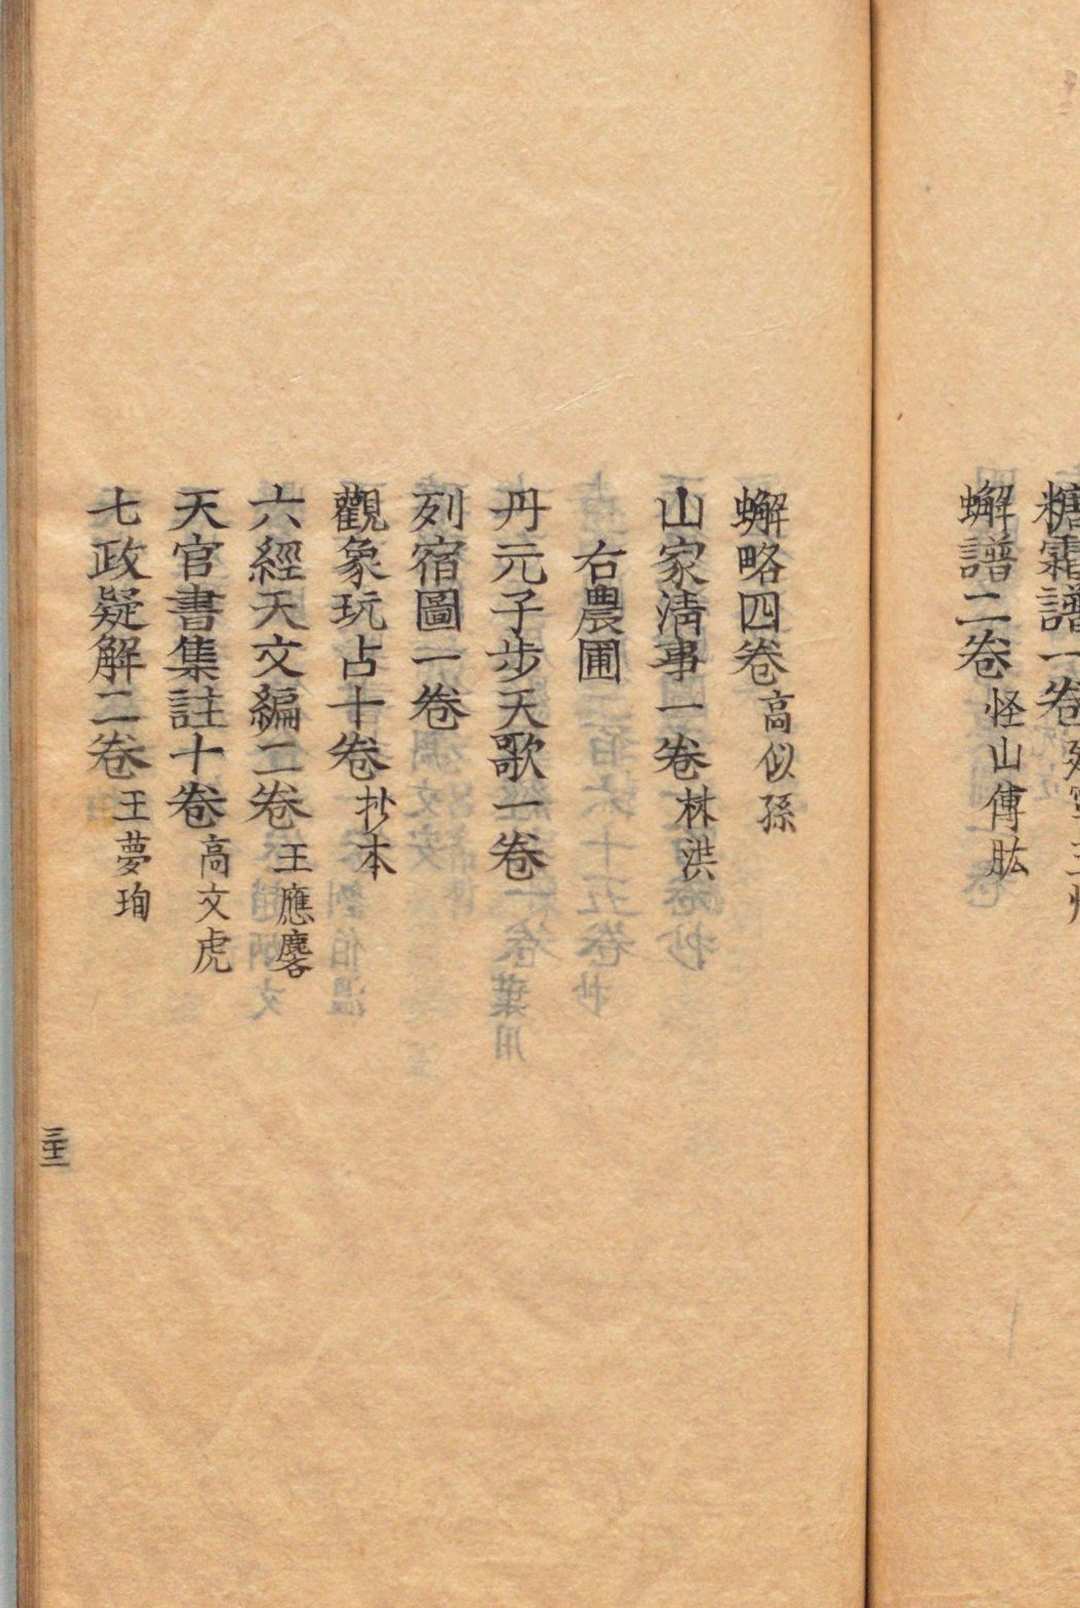 糖霜譜一卷
蠏譜二卷 怪山傅肱
蠏略四卷 高似孫
山家淸事一卷 林洪
右農圃
丹元子步天歌一卷
列宿圖一卷
觀象玩占十卷 抄本
六經天文編二卷 王應麐
天官書集註十卷 高文虎
七政疑解二卷 王夢珣